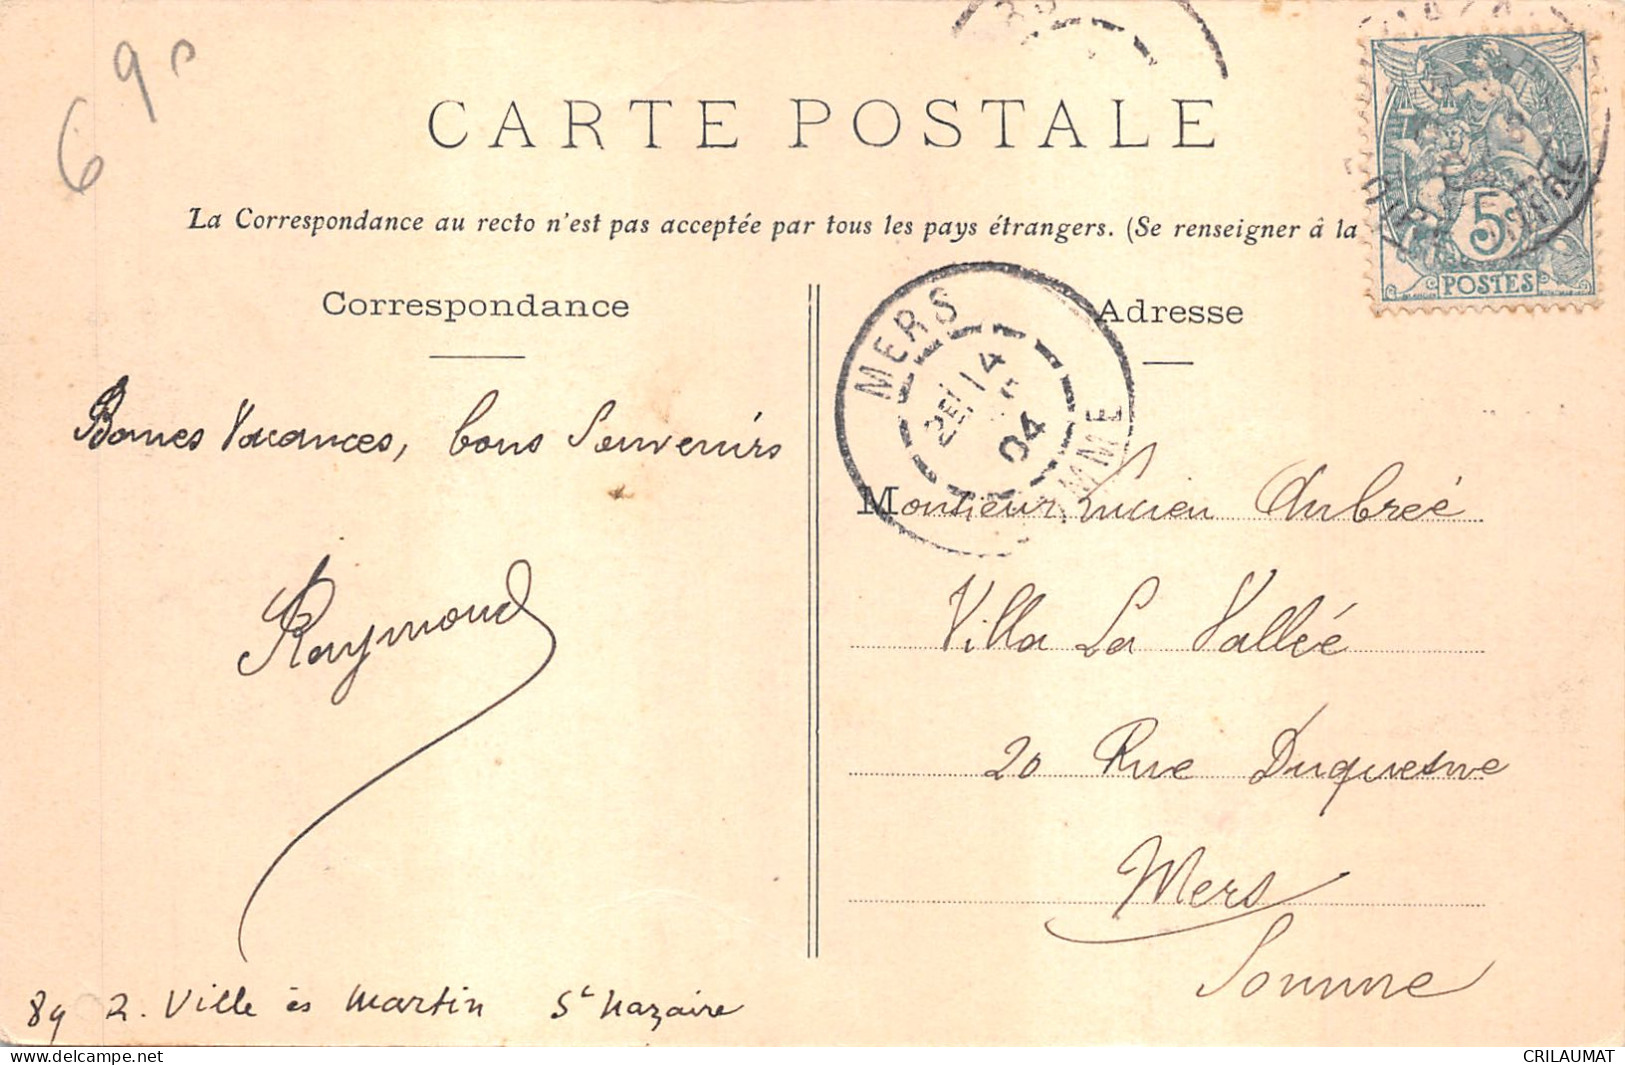 6 90
CARTE POSTALE
La Correspondance au recto n'est pas acceptée par tous les pays étrangers. (Se renseigner à la
5
POSTES
Correspondance
Adresse
MERS
14
04
MME
Bonnes Vacances, bons Souvenirs
Raymond
Monsieur Lucien Aubreé
Villa La Vallée
20 Rue Duquesne
Mers
Somme
89 R. Ville ès Martin St Nazaire
delcampe.net
CRILAUMAT